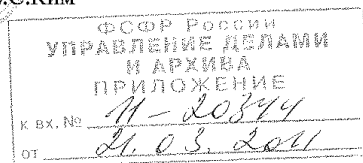 .С.Ким
ФСФР России
УПРАВЛЕНИЕ ДЕЛАМИ
И АРХИВА
ПРИЛОЖЕНИЕ
К ВХ. № 11-20344
ОТ 21.03.2011